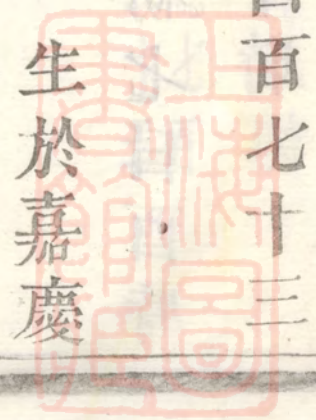 百七十三
生於嘉慶
上海圖書館藏